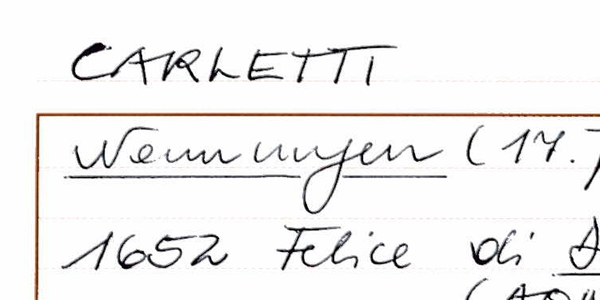 CARLETTI
Nennungen (17.
1652 Felice di